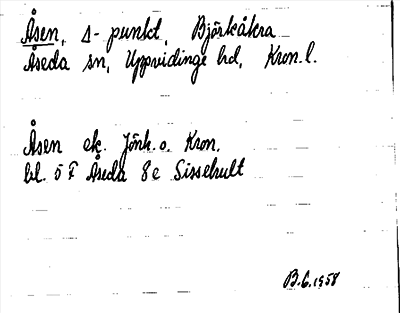 Åsen, Δ-punkt, Björkåkra
Åseda sn, Uppvidinge hd, Kron. l.
Åsen ek. Jönk. o. Kron.
bl. 5 F Åseda 8e Sissehult
B.G. 1958